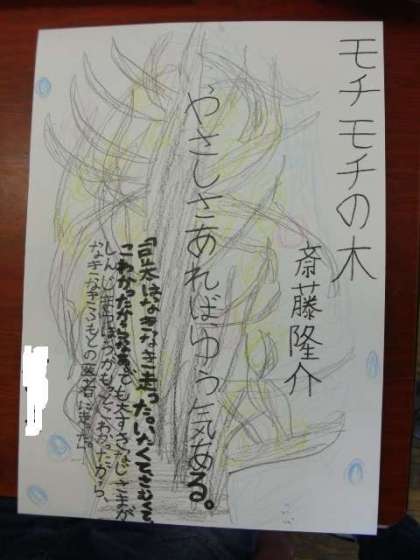 モチモチの木
斎藤隆介
やさしさあればゆう気ある。
「豆太はなきなき走った。いたくて、さむくて、
こわかったからなあ。でも大すきなじさまが
しんじまうほうがもっとこわかったから、
なきなきふもとの医者様へ走った。